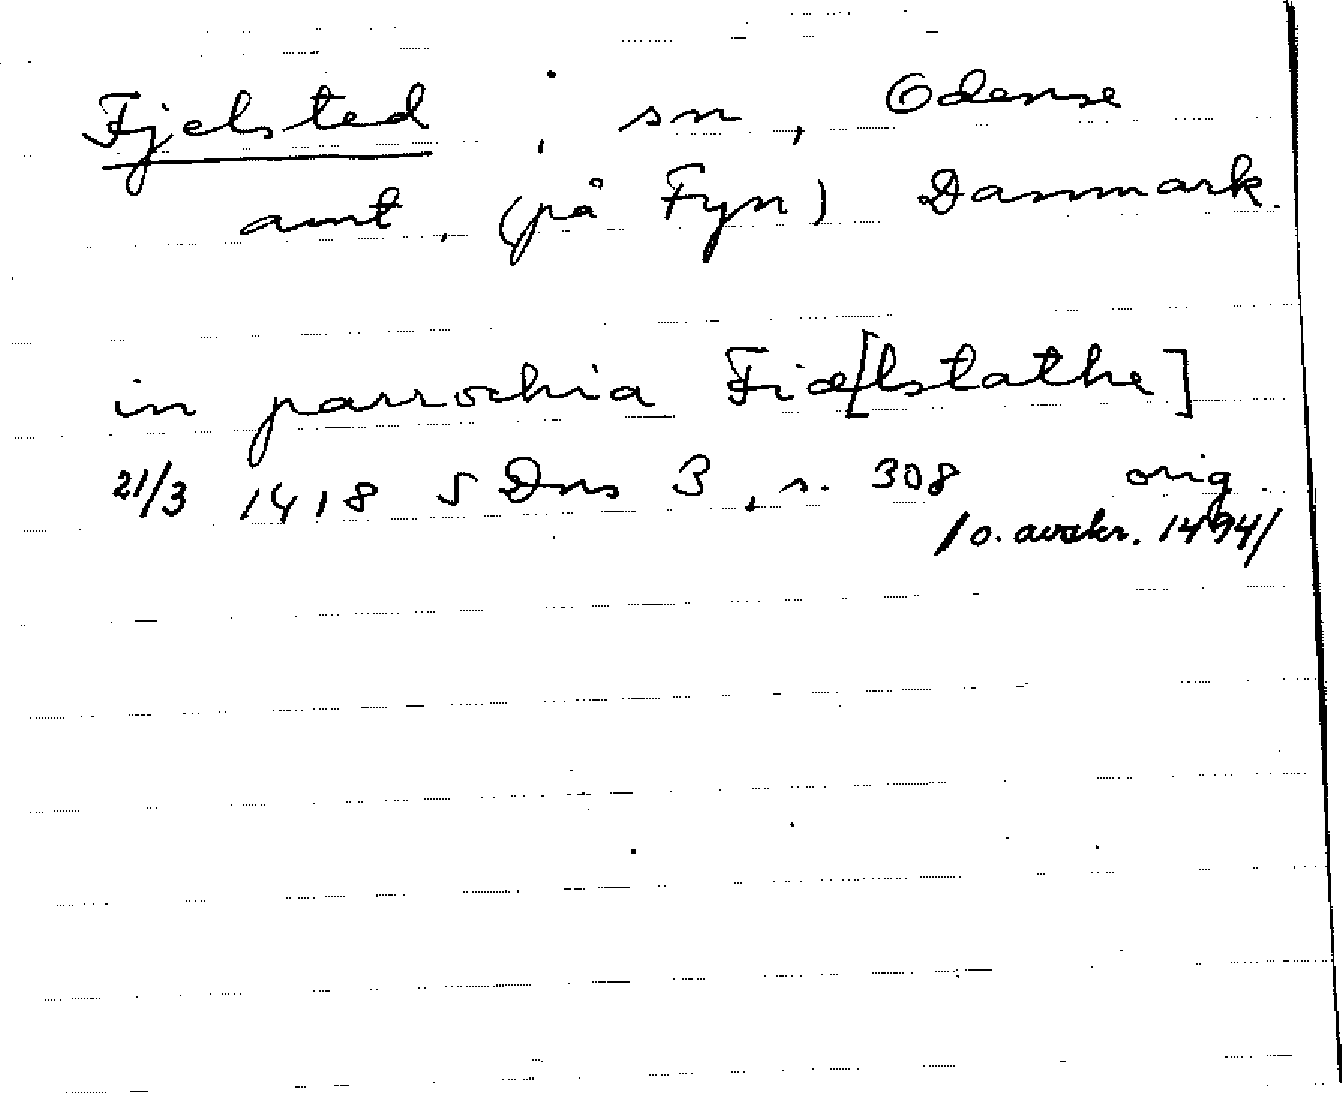 Fjelsted, sn, Odense
amt, (på Fyn) Danmark.
in parrochia Fiæ[lstathe]
21/3 1418 SDns 3, s. 308 orig.
/o. avskr. 1494/